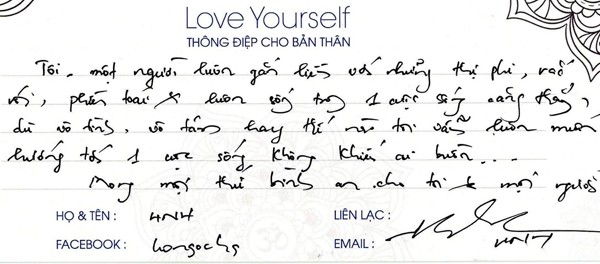 Love Yourself
THÔNG ĐIỆP CHO BẢN THÂN
Tôi, một người luôn gắn liền với những thị phi, rắc
rối, phiền toái luôn sống trong 1 cuộc sống căng thẳng,
dù vô tình, vô tâm hay thế nào tôi vẫn luôn muốn
hướng tới 1 cuộc sống không khiến ai buồn...
Mong mọi thứ bình an cho tôi & mọi người
HỌ & TÊN : LIÊN LẠC :
FACEBOOK : EMAIL :